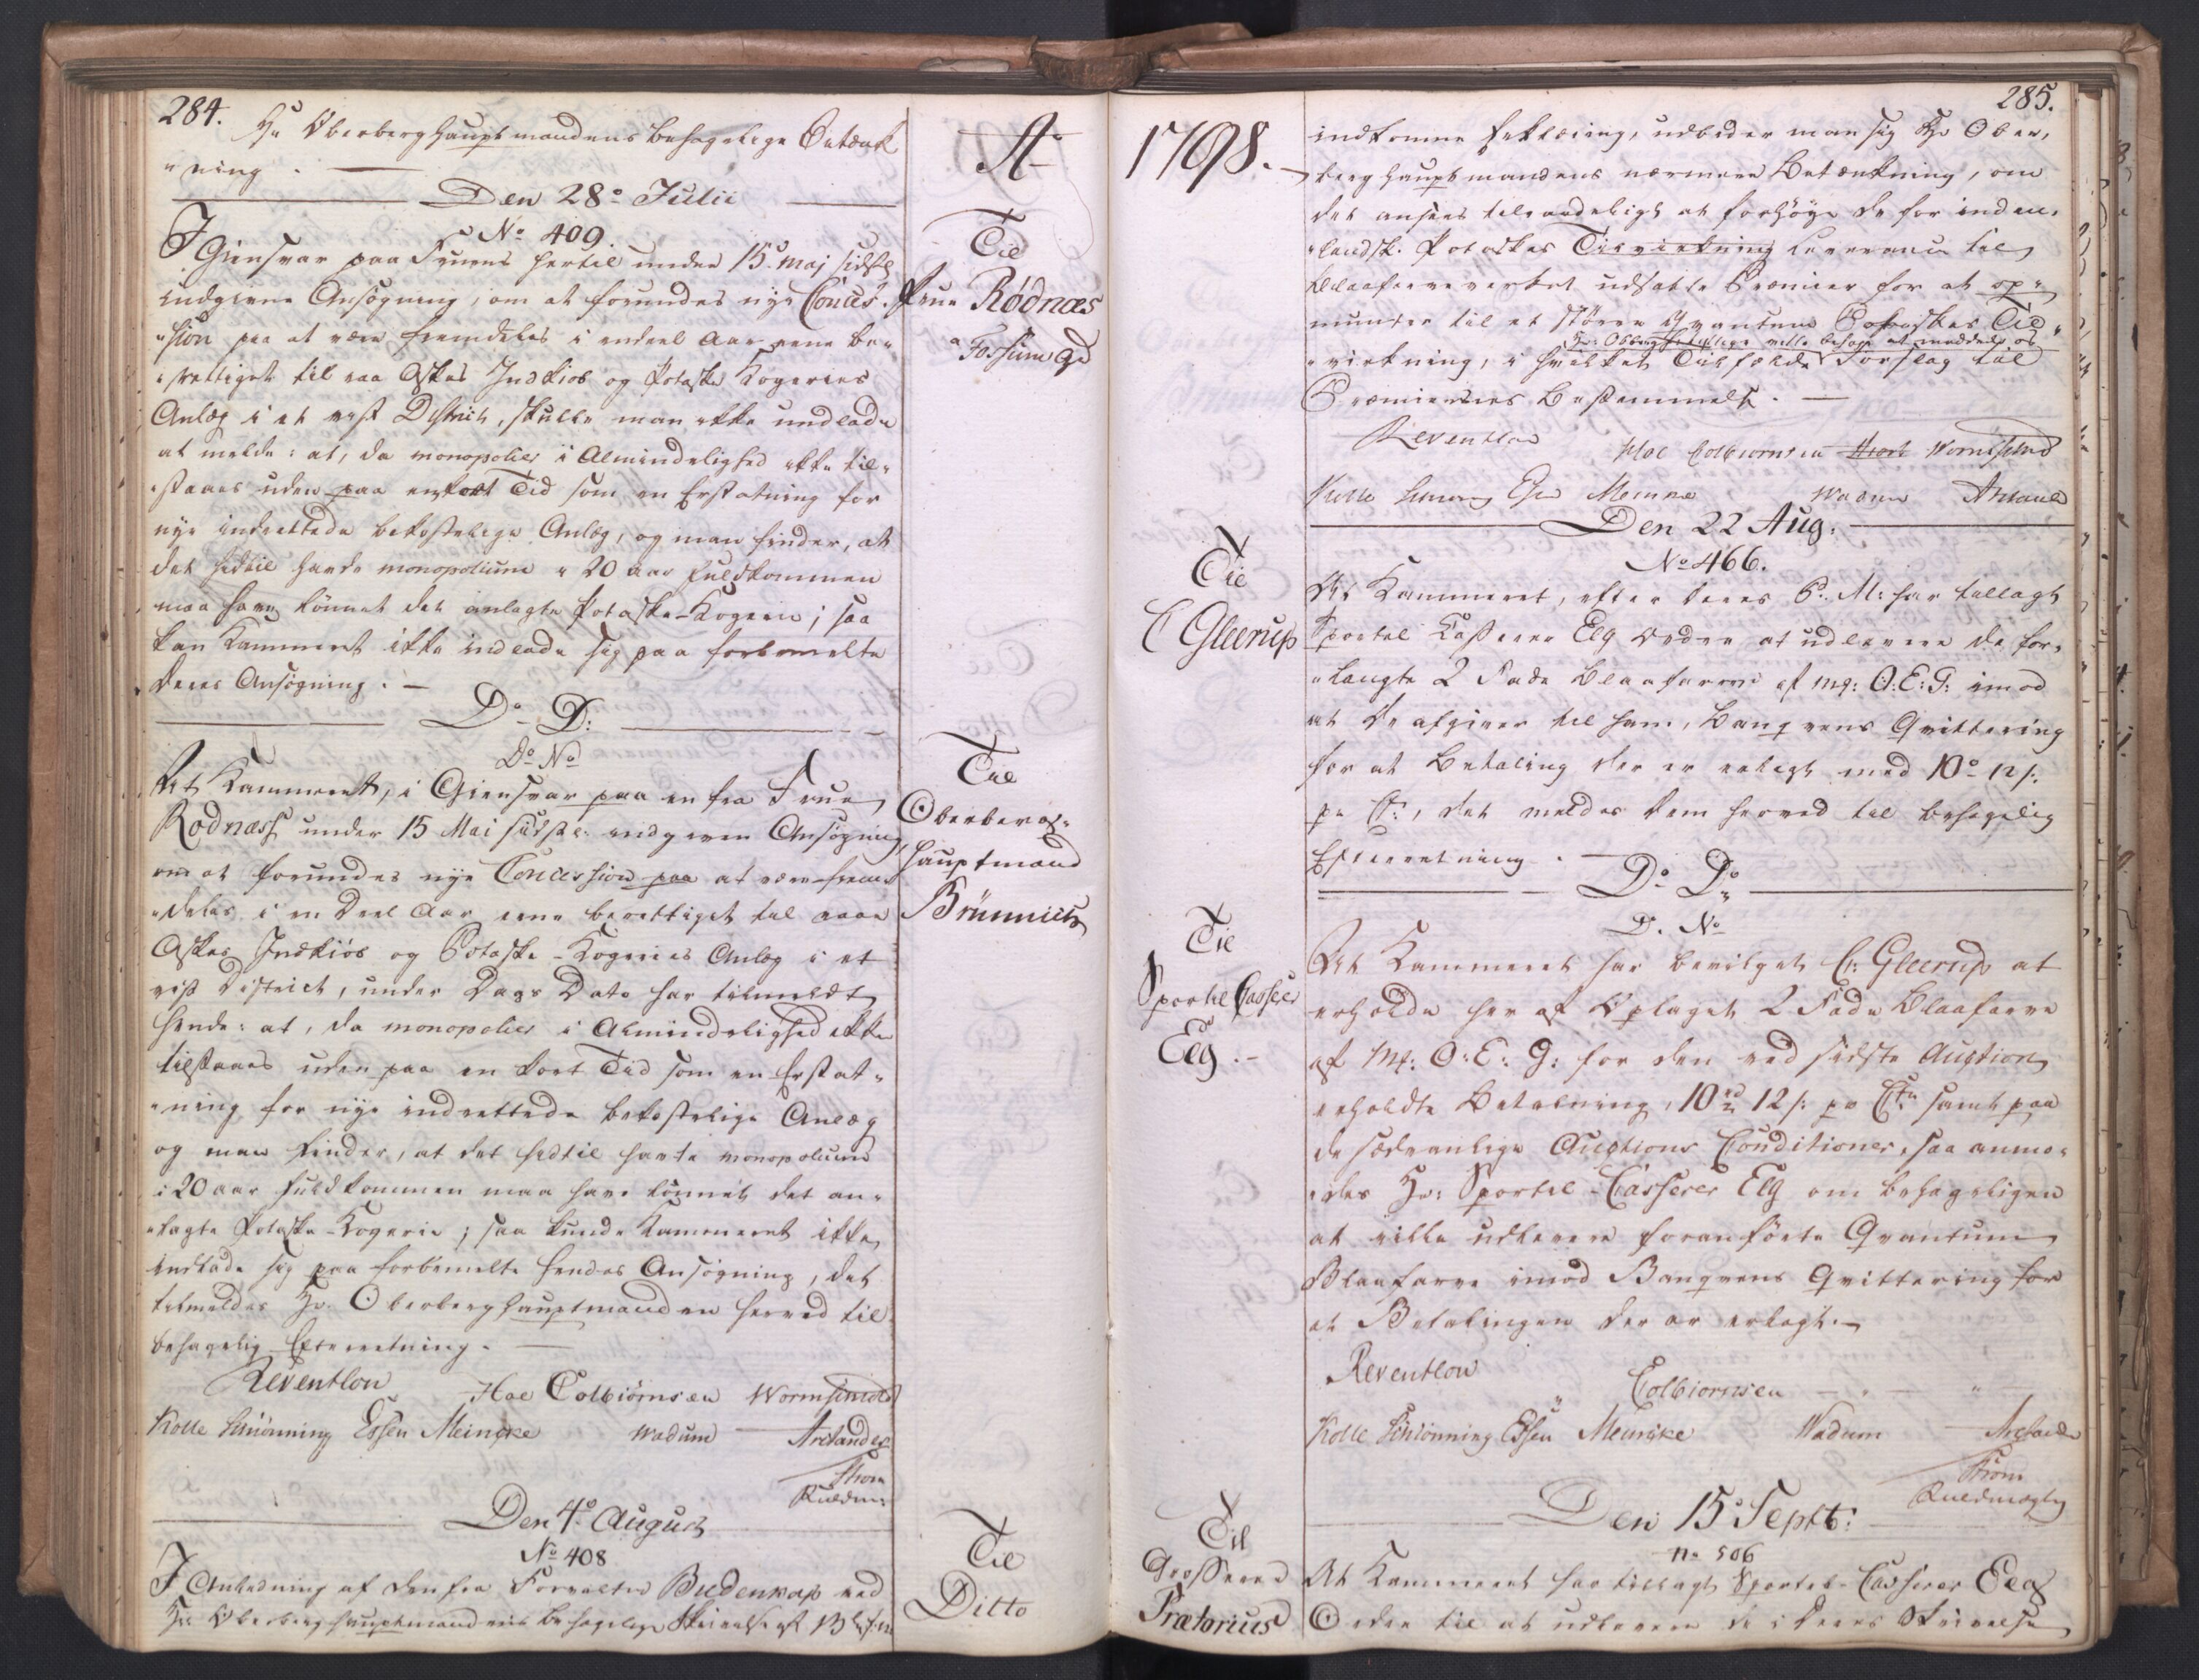 284.
Hr Oberberghauptmandens behagelige Betænk
"ning. —
Den 28de Julii
No 409.
I Giensvar paa Fruens hertil under 15. Maj sidstl.
indgivne Ansøgning, om at forundes nye Conces-
"sion paa at være fremdeles i endeel Aar eene be-
"rettiget til raa Askes Indkiøb og Potaske Kogeries
Anlæg i et vist District, skulle man ikke undlade
at melde: at, da monopolier i Almindelighed ikke til-
"staaes uden paa en kort Tid som en Erstatning for
nye indrettede bekostelige Anlæg, og man finder, at
det hidtil havde monopolium i 20 aar fuldkommen
maa have lønnet det anlagte Potaske-Kogerie; saa
kan Kammeret ikke indlade sig paa forbemelte
Deres Ansøgning. —
Do D:
Do No
At Kammeret, i Giensvar paa en fra Frue
Rodnæss under 15 Mai sidstl. indgiven Ansøgning
om at forundes nye Concession paa at være frem-
"deles i en Deel Aar eene berettiget til raae
Askes Indkiøb og Potaske-Kogeries Anlæg i et
vist District, under Dags Dato har tilmeldt
hende: at, da monopolier i Almindelighed ikke
tilstaaes uden paa en kort Tid som en Erstat-
"ning for nye indrettede bekostelige Anlæg
og man finder, at det hidtil havte monopolium
i 20 aar fuldkommen maa have lønnet det an-
"lagte Potaske-Kogerie; saa kunde Kammeret ikke
indlade sig paa forbemelte hendes Ansøgning, det
tilmeldes Hr. Oberberghauptmanden herved til
behagelig Efterretning. —
Reventlou Hoe Colbiørnsen Wormskiold
Kolle Schiønning Essen Meincke Wadum Arctander
Thom
Kuldm:
Den 4de August
No 408
I Anledning af den fra Forvalter Buddenkop ved
Hr. Oberberghauptmandens behagelige Skrivelse af
Ao
Til
Frue Rødnæs
a Fossum Gd
Til
Oberberg-
hauptmand
Brünnich
Til
Ditto
1798.
Til
C Gleerup
Til
Sportel Casserer
Elg. —
Til
Grosserer
Prætorius
285.
indkomne Erklæring, udbeder man sig Hr Ober-
berghauptmandens nærmere Betænkning, om
det ansees tilraadeligt at forhøye de for inden-
"landsk Potaskes Tilvirkning Leverance til
Blaafarveverket udsatte Præmier for at op-
muntre til et større Qvantum Potaskes Til-
Hr: Obbhg: tillige ville behage at meddele os
"virkning, i hvilket Tilfælde Forslag til
Præmiernes Bestemmelse. —
Reventlou Hoe Colbiørnsen Hiort Wormskiold
Kolle Schiønning Essen Meincke Wadum Arctand
Den 22 Aug:
No 466.
At Kammeret, efter Deres P. M: har tillagt
Sportel Casserer Elg Ordre at udlevere de for-
"langte 2 Fade Blaafarve af Mq: O: E: G: imod
at De afgiver til ham, Banqvens Qvittering
for at Betaling der er erlagt med 10rd 12 s:
pr Ct:, det meldes Dem herved til behagelig
Efterretning. —
Do Do
D. No
At Kammeret har bevilget C: Gleerup at
erholde her af Oplaget 2 Fade Blaafarve
af Mq: O: E: G: for den ved sidste Auction
erholdte Betalning, 10rd 12 s: pr Ctn samt paa
de sædvanlige Auctions Conditioner, saa anmo-
"des Hr: Sportel-Casserer Elg om behageligen
at ville udlevere foranførte Qvantum
Blaafarve imod Banqvens Qvittering for
at Betalingen der er erlagt. —
Reventlou Colbiørnsen — " — "
Kolle Schiønning Essen Meincke Wadum Arctander
Thom
Kuldmægtig
Den 15 Septb:
no 506
At Kammeret har tillagt Sportel-Casserer Elg
Ordre til at udlevere de i Deres Skrivelse